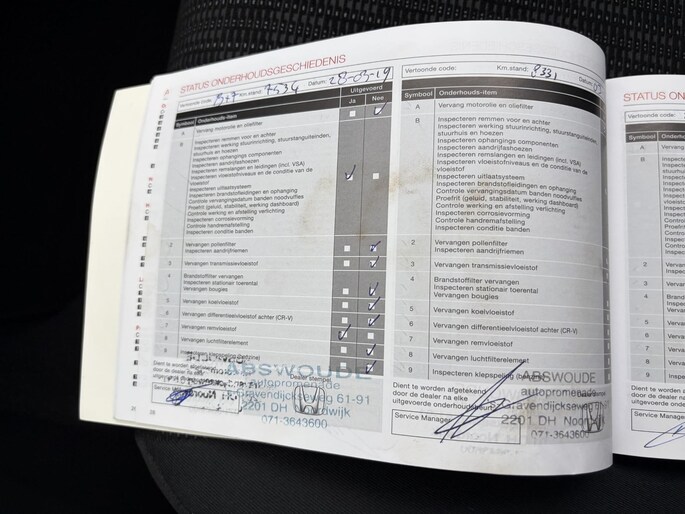 STATUS ONDERHOUDSGESCHIEDENIS
Vertoonde code: B+7 Km.stand: 7534 Datum: 28-03-19
Symbool Onderhouds-item Uitgevoerd
Ja Nee
A Vervang motorolie en oliefilter
B Inspecteren remmen voor en achter
Inspecteren werking stuurinrichting, stuurstangeinden,
stuurhuis en hoezen
Inspecteren ophangings componenten
Inspecteren aandrijfashoezen
Inspecteren remslangen en leidingen (incl. VSA)
Inspecteren vloeistofniveaus en de conditie van de
vloeistof
Inspecteren uitlaatsysteem
Inspecteren brandstofleidingen en ophanging
Controle vervangingsdatum banden noodvulfles
Proefrit (geluid, stabiliteit, werking dashboard)
Controle werking en afstelling verlichting
Inspecteren corrosievorming
Controle handremafstelling
Inspecteren conditie banden
2 Vervangen pollenfilter
Inspecteren aandrijfriemen
3 Vervangen transmissievloeistof
4 Brandstoffilter vervangen
Inspecteren stationair toerental
Vervangen bougies
5 Vervangen koelvloeistof
6 Vervangen differentieelvloeistof achter (CR-V)
7 Vervangen remvloeistof
8 Vervangen luchtfilterelement
Dealer stempel
ABSWOUDE
autopromenade
2201 DH Noordwijk
071-3643600
Vertoonde code: Km.stand: 9331 Datum:
Symbool Onderhouds-item
A Vervang motorolie en oliefilter
B Inspecteren remmen voor en achter
Inspecteren werking stuurinrichting, stuurstangeinden,
stuurhuis en hoezen
Inspecteren ophangings componenten
Inspecteren aandrijfashoezen
Inspecteren remslangen en leidingen (incl. VSA)
Inspecteren vloeistofniveaus en de conditie van de
vloeistof
Inspecteren uitlaatsysteem
Inspecteren brandstofleidingen en ophanging
Controle vervangingsdatum banden noodvulfles
Proefrit (geluid, stabiliteit, werking dashboard)
Controle werking en afstelling verlichting
Inspecteren corrosievorming
Controle handremafstelling
Inspecteren conditie banden
2 Vervangen pollenfilter
Inspecteren aandrijfriemen
3 Vervangen transmissievloeistof
4 Brandstoffilter vervangen
Inspecteren stationair toerental
Vervangen bougies
5 Vervangen koelvloeistof
6 Vervangen differentieelvloeistof achter (CR-V)
7 Vervangen remvloeistof
8 Vervangen luchtfilterelement
9 Inspecteren klepspeling (benzine)
Dient te worden afgetekend
door de dealer na elke
uitgevoerde onderhoudsbeurt
Service Manager
ABSWOUDE
autopromenade
2201 DH Noordwijk
071-3643600
STATUS ON
Vertoonde code:
Symbool Onderh
A Vervang
B
2
3
4
5
6
7
8
9
Dient te worden
door de dealer
uitgevoerde
Service Man